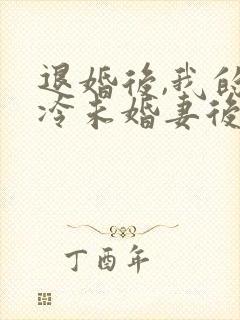 退婚後,我的
冷未婚妻後
丁酉年